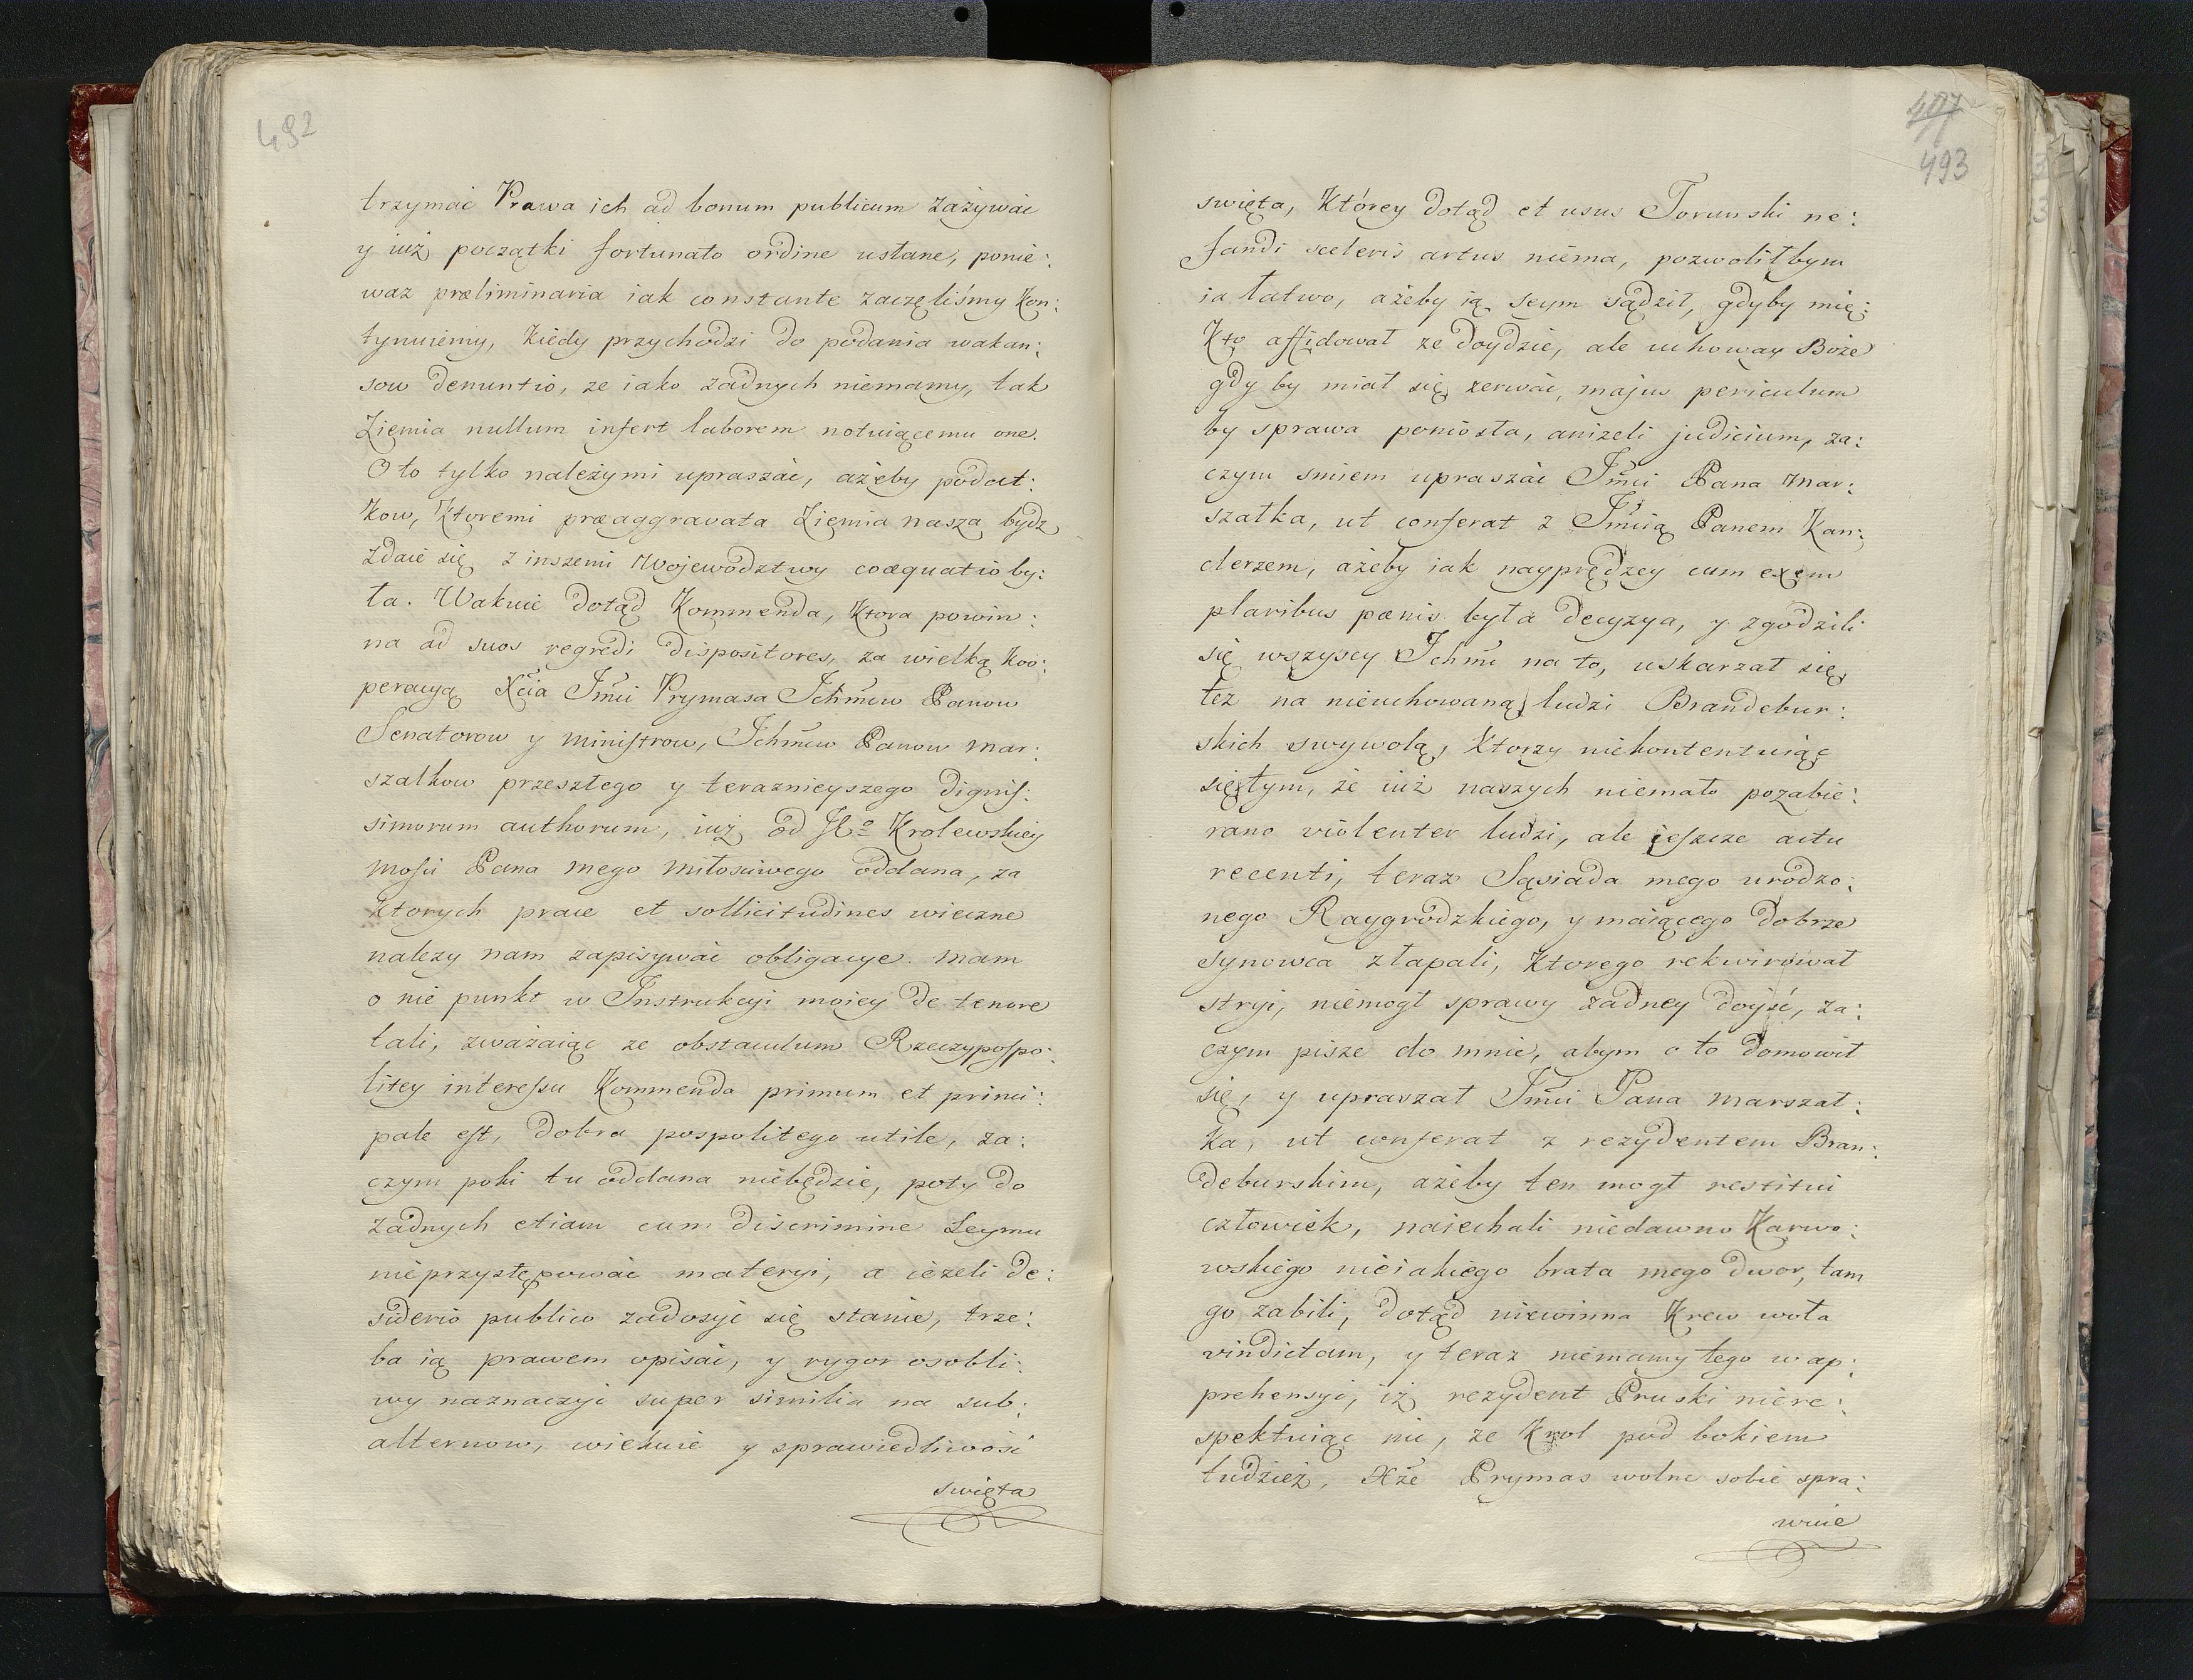 492
trzymać Prawa ich ad bonum publicum zażywać
y iuż początki fortunato ordine usłane, ponie:
waz præliminaria iak constante zaczęliśmy kon:
tynuiemy, kiedy przychodzi do podania wakan:
sow denuntio, ze iako zadnych niemamy, tak
Ziemia nullum infert laborem notuiącemu one.
O to tylko należy mi upraszać, ażeby podat:
kow, ktoremi præaggravata Ziemia nasza bydz
zdaie się z inszemi Wojewodztwy coæquatio by:
ła. Wakuie dotąd Kommenda, ktora powin:
na ad suos regredi dispositores, za wielką koo:
peracyą Xcia Jmći Prymasa Ichmćiow Panow
Senatorow y ministrow, Ichmćiow Panow mar:
szałkow przeszłego y teraznieyszego dignis:
simorum authorum, iuż od Jo Krolewskiey
mości Pana mego miłościwego oddana, za
ktorych prace et sollicitudines wieczne
nalezy nam zapisywać obligacye. mam
o nie punkt w Instrukcyi moiey de tenore
tali, zważaiąc ze obstaculum Rzeczypospo:
litey interessu Kommenda primum et princi:
pale est, dobra pospolitego utile, za:
czym poki tu oddana niebędzie, poty do
żadnych etiam cum discrimine Seymu
nieprzystępować materyi, a ieżeli de:
siderio publico zadosyć się stanie, trze:
ba ią prawem opisać, y rygor osobli:
wy naznaczyć super similia na sub:
alternow, wiekuie y sprawiedliwość
swięta
407
493
swięta, którey dotąd et usus Torunski ne:
fandi sceleris artus niema, pozwolił bym
ia łatwo, ażeby ią seym sądził, gdyby mię
kto affidował ze doydzie, ale uchoway Boże
gdy by miał się zerwać, majus periculum
by sprawa poniosła, anizeli judicium, za:
czym smiem upraszać Jmći Pana Mar:
szałka, ut conferat z Jmćią Panem Kan:
clerzem, ażeby iak nayprędzey cum exem
plaribus pænis była decyzya, y zgodzili
się wszyscy Ichmć na to, uskarzał się,
też na nieuchowaną ludzi Brandebur:
skich swywolą, ktorzy niekontentuiąc
się tym, że iuż naszych niemało pozabie:
rano violenter ludzi, ale ieszcze actu
recenti, teraz Sąsiada mego urodzo:
nego Raygrodzkiego, y maiącego dobrze
synowca złapali, ktorego rekwirował
stryi, niemogł sprawy żadney doyść, za:
czym pisze do mnie, abym o to domowił
się, y upraszał Jmći Pana marszał:
ka, ut conferat z rezydentem Bran:
deburskim, ażeby ten mogł restitui
człowiek, naiechali niedawno Karwo:
wskiego nieiakiego brata mego dwor, tam
go zabili, dotąd niewinna krew woła
vindictam, y teraz niemamy tego w ap:
prehensyi, iż rezydent Pruski niere:
spektuiąc nic, ze Krol pod bokiem
tudzież, Xże Prymas wolne sobie spra:
wuie